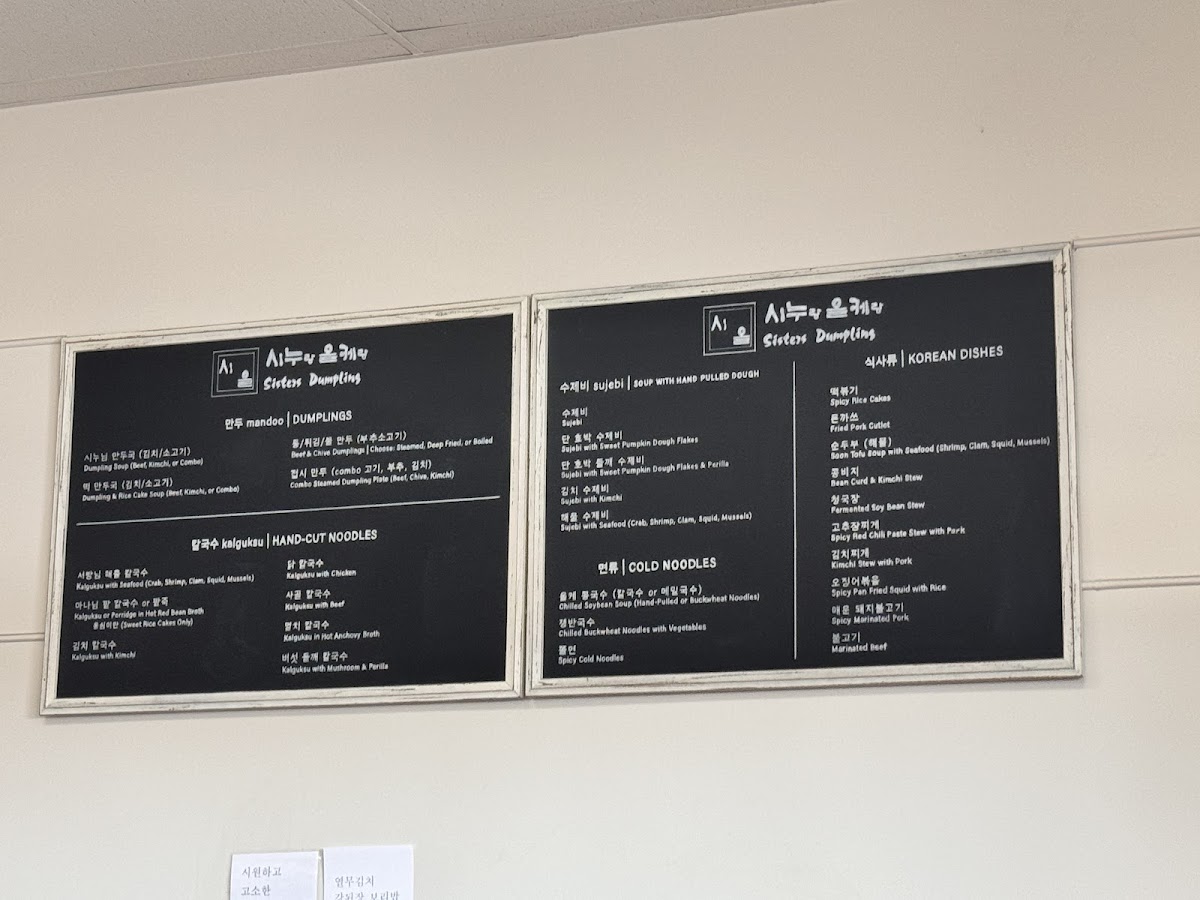 시
올
시누랑 올케랑
Sisters Dumpling
만두 mandoo | DUMPLINGS
시누님 만두국 (김치/소고기)
Dumpling Soup (Beef, Kimchi, or Combo)
떡 만두국 (김치/소고기)
Dumpling & Rice Cake Soup (Beef, Kimchi, or Combo)
통/튀김/물 만두 (부추소고기)
Beef & Chive Dumplings | Choose: Steamed, Deep Fried, or Boiled
접시 만두 (combo 고기, 부추, 김치)
Combo Steamed Dumpling Plate (Beef, Chive, Kimchi)
칼국수 kalguksu | HAND-CUT NOODLES
서방님 해물 칼국수
Kalguksu with Seafood (Crab, Shrimp, Clam, Squid, Mussels)
마나님 팥 칼국수 or 팥죽
Kalguksu or Porridge in Hot Red Bean Broth
옹심이만 (Sweet Rice Cakes Only)
김치 칼국수
Kalguksu with Kimchi
닭 칼국수
Kalguksu with Chicken
사골 칼국수
Kalguksu with Beef
멸치 칼국수
Kalguksu in Hot Anchovy Broth
버섯 들깨 칼국수
Kalguksu with Mushroom & Perilla
시
올
시누랑 올케랑
Sisters Dumpling
수제비 sujebi | SOUP WITH HAND PULLED DOUGH
수제비
Sujebi
단 호박 수제비
Sujebi with Sweet Pumpkin Dough Flakes
단 호박 들깨 수제비
Sujebi with Sweet Pumpkin Dough Flakes & Perilla
김치 수제비
Sujebi with Kimchi
해물 수제비
Sujebi with Seafood (Crab, Shrimp, Clam, Squid, Mussels)
면류 | COLD NOODLES
올케 콩국수 (칼국수 or 메밀국수)
Chilled Soybean Soup (Hand-Pulled or Buckwheat Noodles)
쟁반국수
Chilled Buckwheat Noodles with Vegetables
쫄면
Spicy Cold Noodles
식사류 | KOREAN DISHES
떡볶기
Spicy Rice Cakes
돈까쓰
Fried Pork Cutlet
순두부 (해물)
Soon Tofu Soup with Seafood (Shrimp, Clam, Squid, Mussels)
콩비지
Bean Curd & Kimchi Stew
청국장
Fermented Soy Bean Stew
고추장찌개
Spicy Red Chili Paste Stew with Pork
김치찌개
Kimchi Stew with Pork
오징어볶음
Spicy Pan Fried Squid with Rice
매운 돼지불고기
Spicy Marinated Pork
불고기
Marinated Beef
시원하고
고소한
열무김치
보리밥